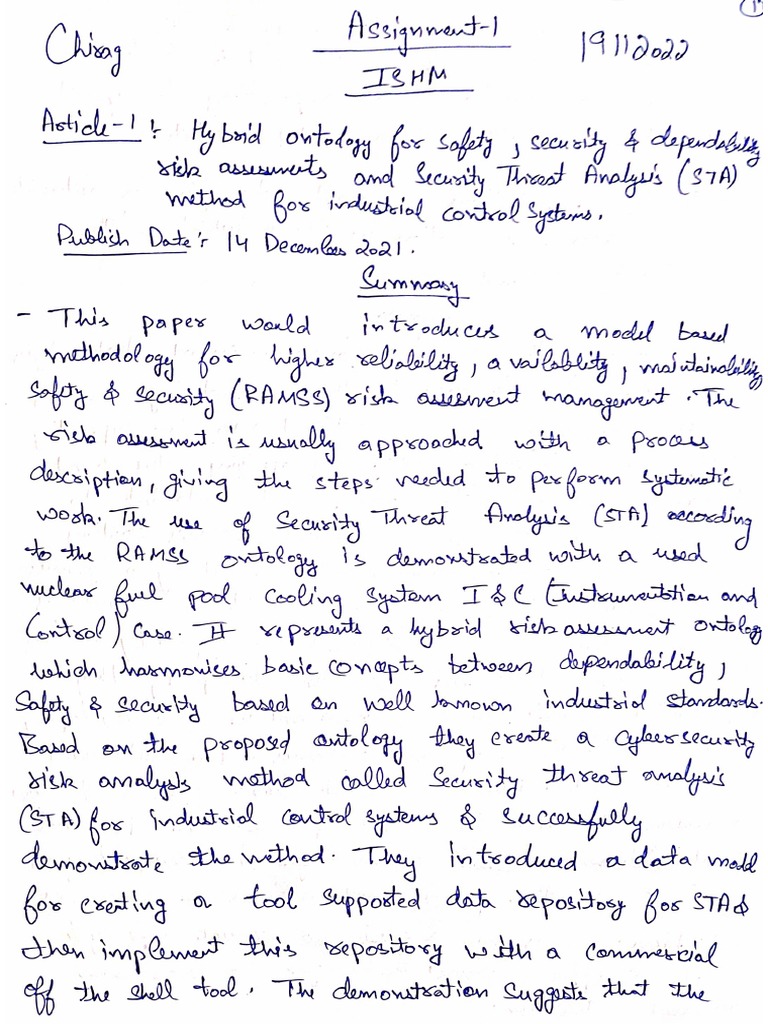 1
Chirag
Assignment-1
19112022
ISHM
Article-1 :- Hybrid ontology for safety, security & dependability
risk assessments and Security Threat Analysis (STA)
method for industrial control systems.
Publish Date :- 14 December 2021.
Summary
- This paper would introduces a model based
methodology for higher reliability, availability, maintainability
safety & security (RAMSS) risk assessment management. The
risk assessment is usually approached with a process
description, giving the steps needed to perform systematic
work. The use of Security Threat Analysis (STA) according
to the RAMSS ontology is demonstrated with a used
nuclear fuel pool cooling system I&C (Instrumentation and
Control) case. It represents a hybrid risk assessment ontology
which harmonises basic concepts between dependability,
Safety & security based on well known industrial standards.
Based on the proposed ontology they create a cybersecurity
risk analysis method called Security threat analysis
(STA) for industrial control systems & successfully
demonstrate the method. They introduced a data model
for creating a tool supported data repository for STA &
then implement this repository with a commercial
off the shell tool. The demonstration suggests that the